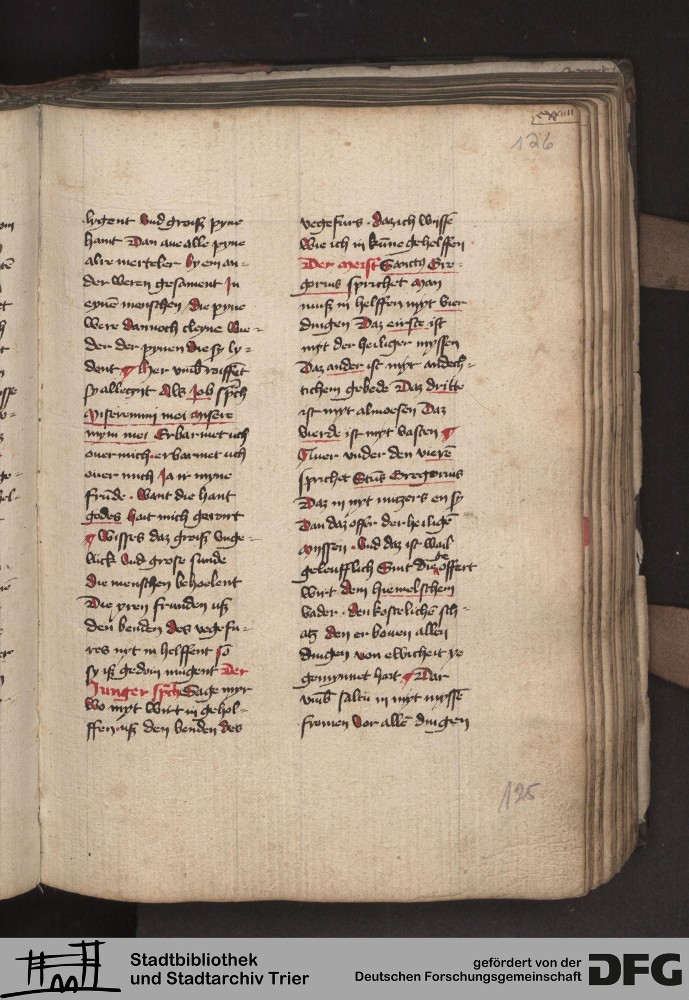 cxxviii
126
lygent Vnd groiß pyne
hant Dan aue alle pyne
alre merteler by eyn an-
der weren gesament In
eynē menschen / die pyne
were dannoch cleyne wie-
der der pynen die sy ly-
dent ¶ Her vmb roiffēt
sy allezijt Als Job sp̄ch
Miseremini mei misere
mym mei Erbarmet uch
ouer mich erbarmet uch
ouer mich Ja ir myne
frūde . Want die hant
godes hait mich gerort
¶ Wisses daz groiß vnge-
lick Vnd grose sunde
die menschen behoelent
Die yren frunden uß
den benden des vegefu-
res nyt in helffent so
sy iß gedoin mugent Der
Junger sp̄ch Sage myr
wo myt wirt in gehol-
ffen uß den benden des
vegefurs . daz ich wissē
wie ich in kūne gehelffen
Der meist' Sanctus Gre-
gorius sprichet man
muß in helffen myt vier
dingen Daz eirste ist
myt der heiliger myssen
Daz ander ist myt andech-
tichem gebede Daz dritte
ist myt almoesen Daz
vierde ist myt vasten ¶
Auer vnder den vierē
sprichet Sctūs Gregorius
Daz in nyt nutzers en sy
Dan daz offer der heiligē
myssen . Vnd daz ist wail
geleufflich Sint die ge offert
wirt dem hiemelschem
vader . den kostelichē sch-
atz den er bouen allen
dingen von ewicheit ye
gemynnet hait ¶ Dar
vmb saltu in myt myssē
fromen Vor allē dingen
125
Stadtbibliothek
und Stadtarchiv Trier
gefördert von der
Deutschen Forschungsgemeinschaft
DFG